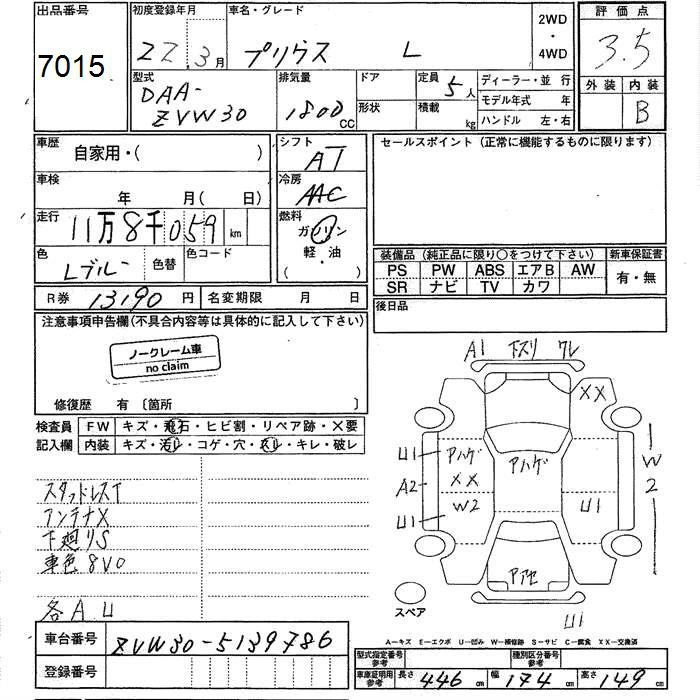 出品番号
7015
初度登録年月
22.3月
車名・グレード
プリウス L
2WD
・
4WD
評価点
3.5
外装 内装
B
型式
DAA-
ZVW30
排気量
1800 CC
ドア
形状
定員
5人
積載
kg
ディーラー・並 行
モデル年式 年
ハンドル 左・右
車歴
自家用・( )
車検
年 月( 日)
走行
11万8千059 km
色
Lブルー
色替
色コード
シフト
AT
冷房
AAC
燃料
ガソリン
軽・油
R券 13190 円
名変期限 月 日
セールスポイント(正常に機能するものに限ります)
装備品(純正品に限り○をつけて下さい)
新車保証書
PS PW ABS エアB AW
SR ナビ TV カワ
有・無
後日品
注意事項申告欄(不具合内容等は具体的に記入して下さい)
ノークレーム車
no claim
修復歴 有 〔箇所 〕
検査員
記入欄
FW キズ・飛石・ヒビ割・リペア跡・×要
内装 キズ・汚レ・コゲ・穴・スレ・キレ・破レ
スタッドレスT
アンテナX
下廻りS
車色8V0
各AU
車台番号 ZVW30-5139786
登録番号
A1 下スリ ワレ
XX
U1
A2
U1
アハゲ
XX
W2
アハゲ
U1
W
2
スペア
U1
A-キズ E-エクボ U-凹み W-補修跡 S-サビ C-腐食 XX-交換済
型式指定番号
参考
種別区分番号
参考
車庫証明用
参考
長さ 446 cm 幅 174 cm 高さ 149 cm